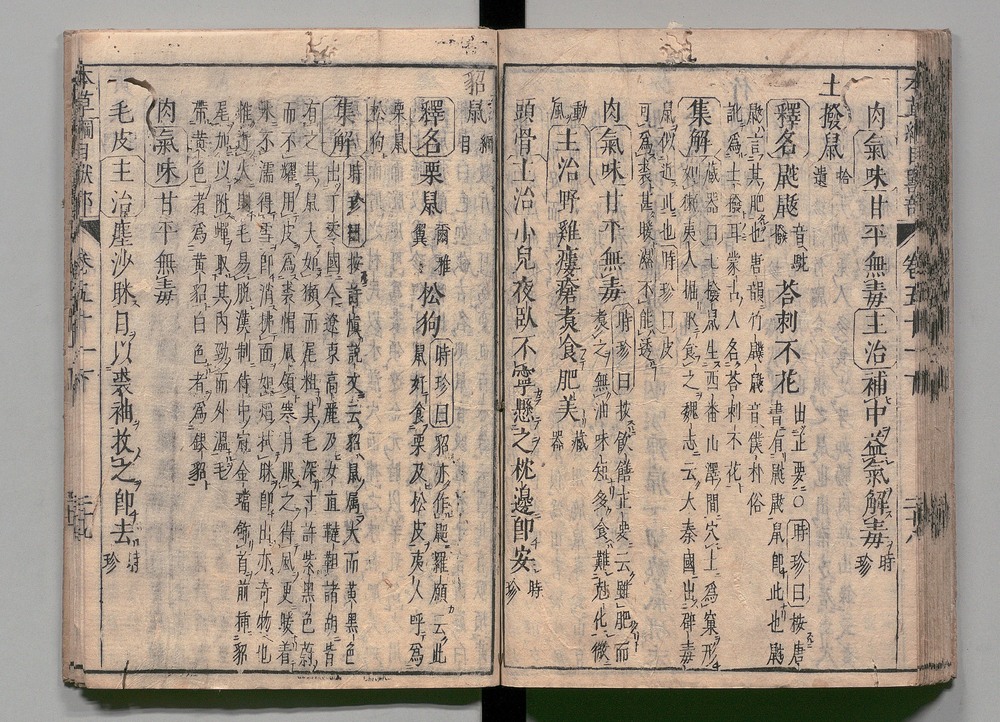 肉氣味甘平無毒主治補中益氣解毒時珍
土撥鼠拾遺
釋名鼧鼥音駝撥荅剌不花出正要○時珍曰按唐書有鼧鼥鼠即此也鼧
鼥言其肥也唐韻作僕朴俗
訛為土撥耳蒙古人名荅剌不花
集解藏器曰土撥鼠生西番山澤間穴土為窠形
如獺夷人掘取食之魏志云大秦國出辟毒
鼠似近此也時珍曰皮
可為裘甚暖濕不能透
肉氣味甘平無毒時珍曰按飲膳正要云雖肥而
煮之無油味短多食難尅化微
動風主治野雞瘻瘡煮食肥美藏器
頭骨主治小兒夜臥不寧懸之枕邊即安時珍
貂鼠綱目
釋名栗鼠爾雅翼松狗時珍曰貂亦作鼦羅願云此
鼠好食栗及松皮夷人呼為
栗鼠
松狗
集解時珍曰按許慎說文云貂鼠屬大而黃黑色
出丁零國今遼東高麗及女直韃靼諸胡皆
有之其鼠大如獺而尾粗其毛深寸許紫黑色蔚
而不耀用皮為裘帽風領寒月服之得風更暖着
水不濡得雪即消拂面如焰拭眯即出亦奇物也
惟近火則毛易脫漢制侍中冠金璫飾首前插貂
尾加以附蟬取其內勁而外溫毛
帶黃色者為黃貂白色者為銀貂
肉氣味甘平無毒
毛皮主治塵沙眯目以裘袖抆之即去時珍